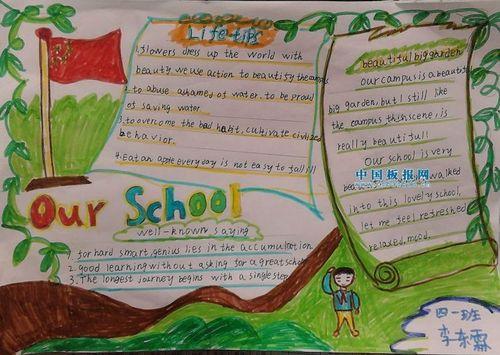 Life tips
1. flowers dress up the world with
beauty we use action to beautify the campus
2. to abuse ashamed of water, to be proud
of saving water.
3. to overcome the bad habit, cultivate civilized
behavior.
4. Eat an apple everyday is not easy to fall ill
Our School
well-known saying
1. for hard smart, genius lies in the accumulation
2. good learning without asking for a great schol
3. The longest journey begins with a single step
beautiful big garden
our campus is a beautiful
big garden, but I still like
the campus this scene, is
really beautiful!
Our school is very
walked
into this lovely school,
let me feel refreshed
relaxed, mood.
中国板报网
四一班
李东霖